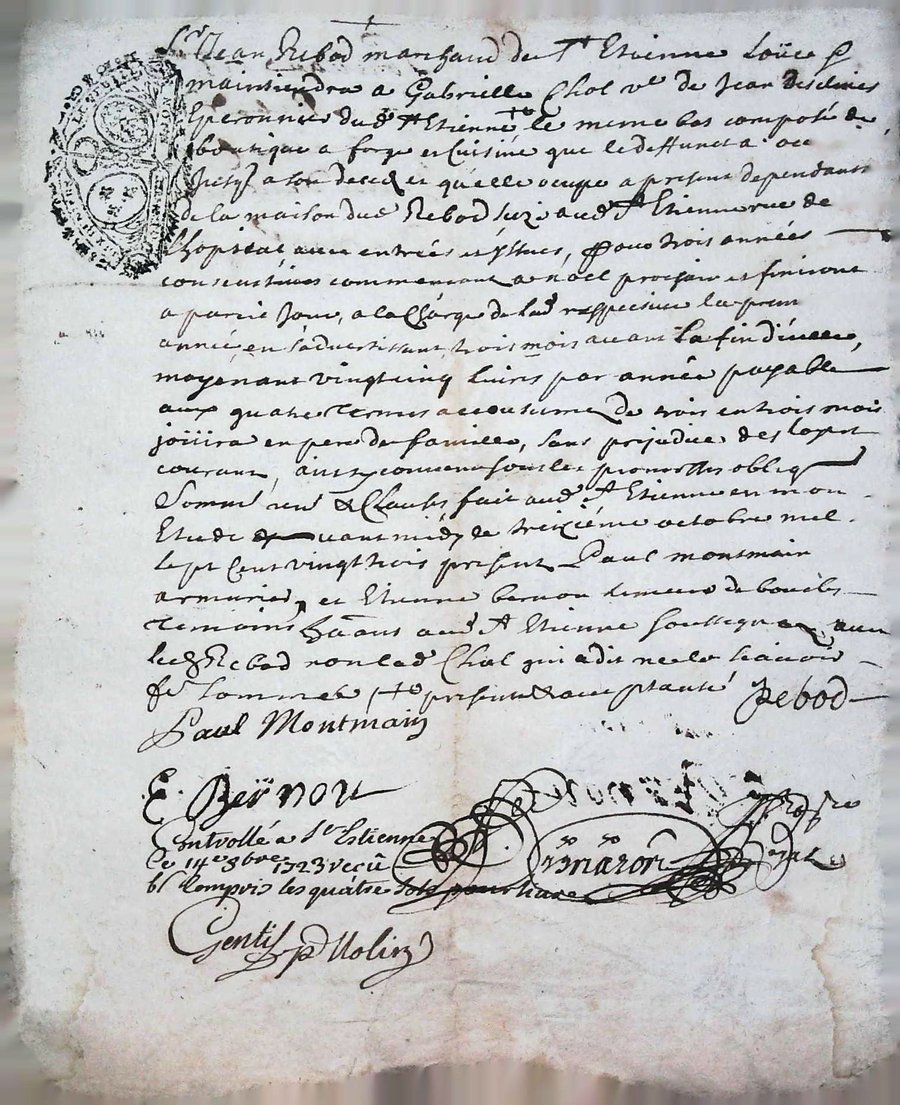 Sr Jean Rebod marchand de St Etienne Loüe &
maintiendra a Gabrielle Chol ve de Jean
Eperonnier dud St Etienne le meme bas composé de
boutique a forge et Cuisine que led deffunct a oc
Jusqs a son decez et qu'elle ocupe a present dependant
de la maison dud Rebod size aud St Etienne rue de
Lhopital avec entrées et yssues, pour trois années
consecutives commencant a noel prochain et finiront
a pareil Jour, a la Charge de la respectivement la prem
année, en s'advertissant trois mois avant la fin d'icelle,
moyenant vingt cinq livres par année payable
aux quatre termes accoutumé de trois en trois mois
joüira en pere de famille, sans prejudice des loyers
courant, ainsy convenu sous les promesses oblig
Soumis ren & Clauses fait aud St Etienne en mon
Etude avant midy le treizième octobre mil
sept Cent vingt trois present Paul montmain
armurier, et Etienne bernou limeur de boucles
temoins aud St Etienne Soussignez avec
led Rebod non lad Chol qui a dit ne le scavoir
de Sommée presente & acceptante Rebod
Paul Montmain
E. Beÿnou
Controllé a St Estienne
Le 14e 8bre 1723 receu
Compris les quatre sols pour livre
mazon
Gentil pr Molin